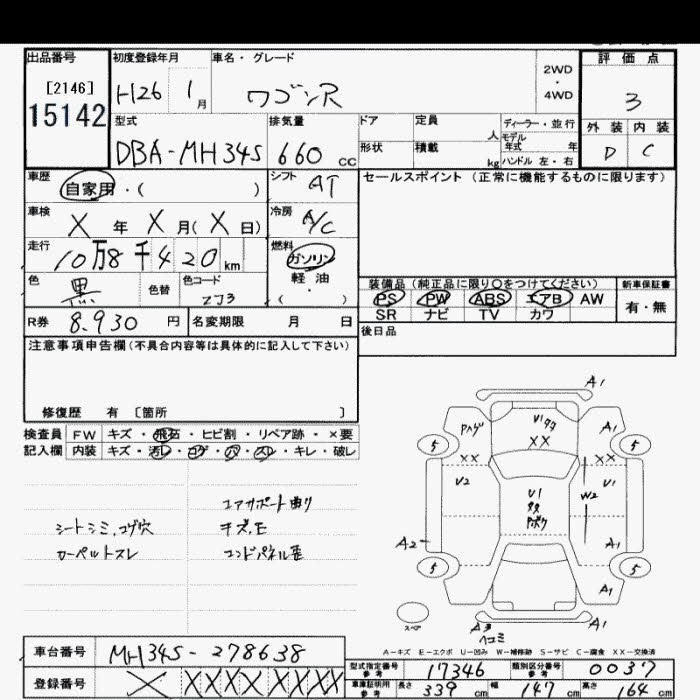 出品番号 初度登録年月 車名・グレード 評価点
[2146] H26 1月 ワゴンR 2WD・4WD 3
15142 外装 内装
型式 排気量 ドア 定員 人 ディーラー・並行
DBA-MH34S 660cc 形状 積載 kg モデル年式 年 ハンドル 左・右 D C
車歴 自家用・( ) シフト AT セールスポイント (正常に機能するものに限ります)
車検 X年 X月(X日) 冷房 A/C
走行 10万8千420km 燃料 ガソリン・軽油
( )
色 黒 色替 色コード ZJ3 装備品 (純正品に限り○をつけてください) 新車保証書
PS PW ABS エアB AW 有・無
SR ナビ TV カワ
R券 8,930円 名変期限 月 日 後日品
注意事項申告欄(不具合内容等は具体的に記入して下さい)
修復歴 有 [箇所 ]
検査員 FW キズ・飛石・ヒビ割・リペア跡・×要
記入欄 内装 キズ・汚レ・コゲ・穴・スレ・キレ・破レ
エアサポート曲り
シートシミ、コゲ穴
カーペットスレ
A1
A1
XX
5 5
XX XX
U2 U1 U1
W2
A2 A1
5 5
A1
スペア A3 A1
ヘコミ
A-キズ E-エクボ U-凹み W-補修跡 S-サビ C-腐食 XX-交換済
車台番号 MH34S-278638
登録番号 X XXXX XXXX
型式指定番号 参考 17346 類別区分番号 参考 0037
車庫証明用 参考 長さ 339cm 幅 147cm 高さ 164cm